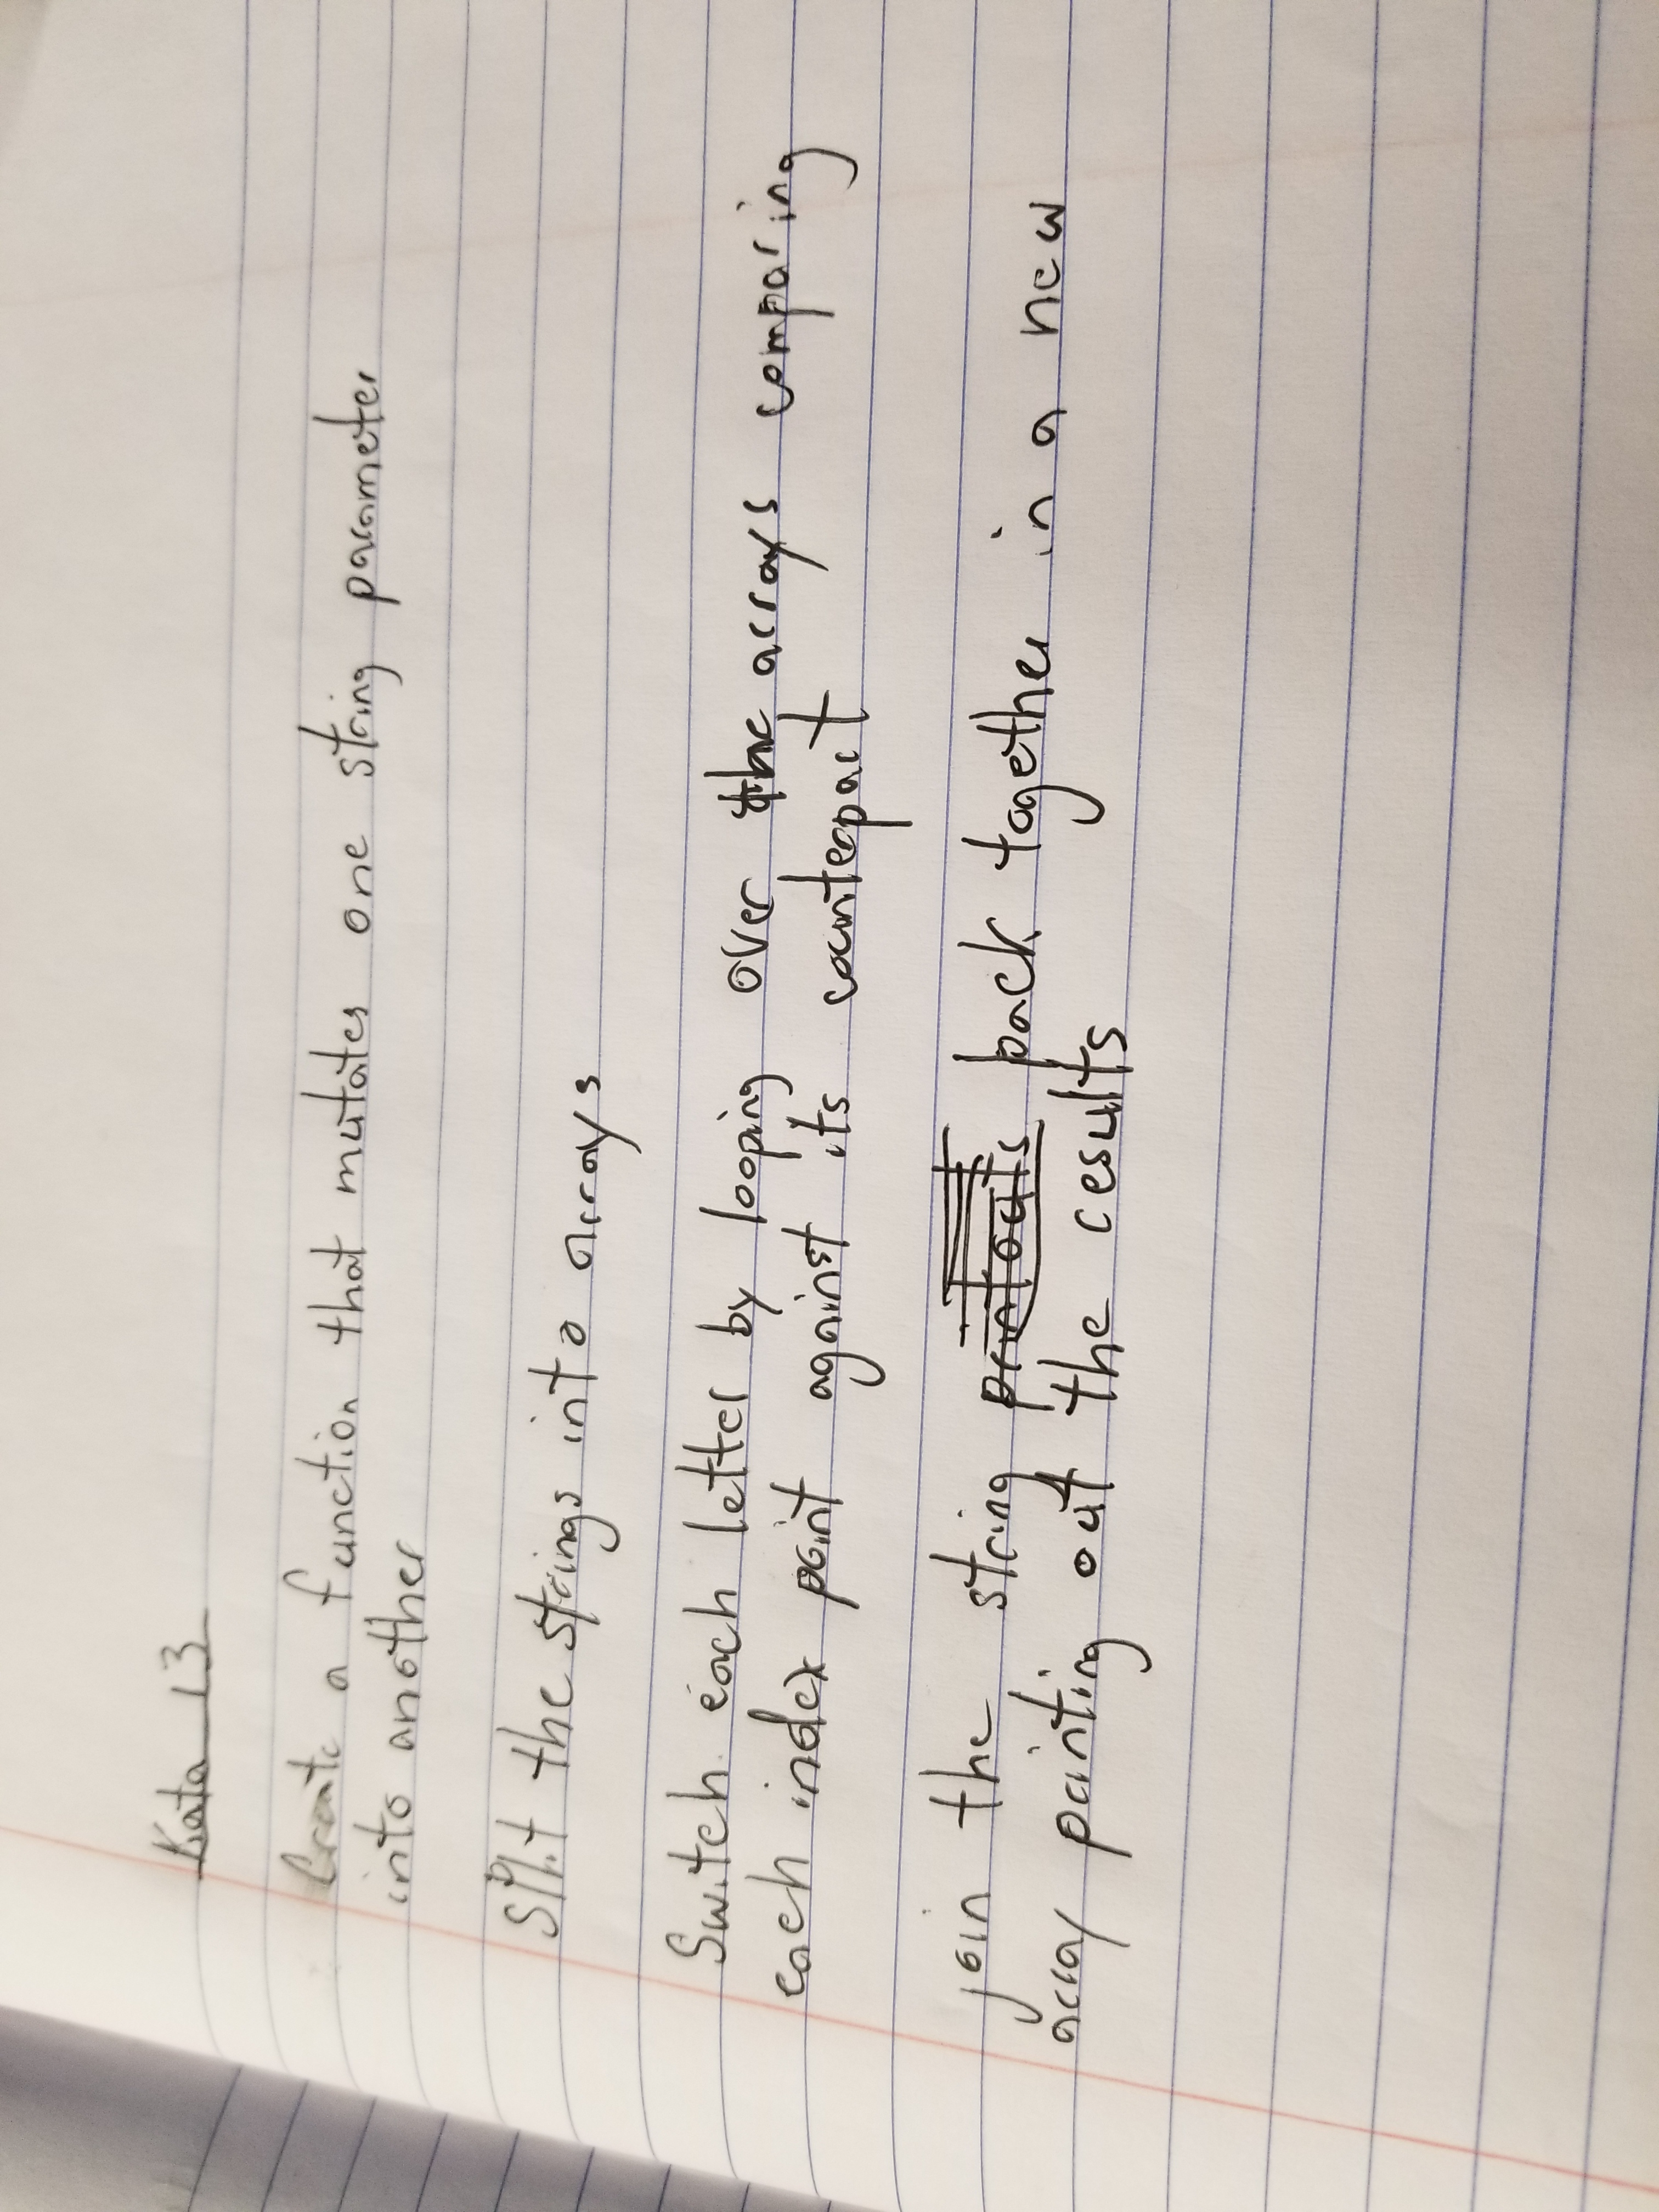 Kata 13
Create a function that mutates one string parameter
into another
Split the strings into arrays
Switch each letter by looping over the arrays comparing
each index point against its counterpart
join the string printouts back together in a new
array printing out the results